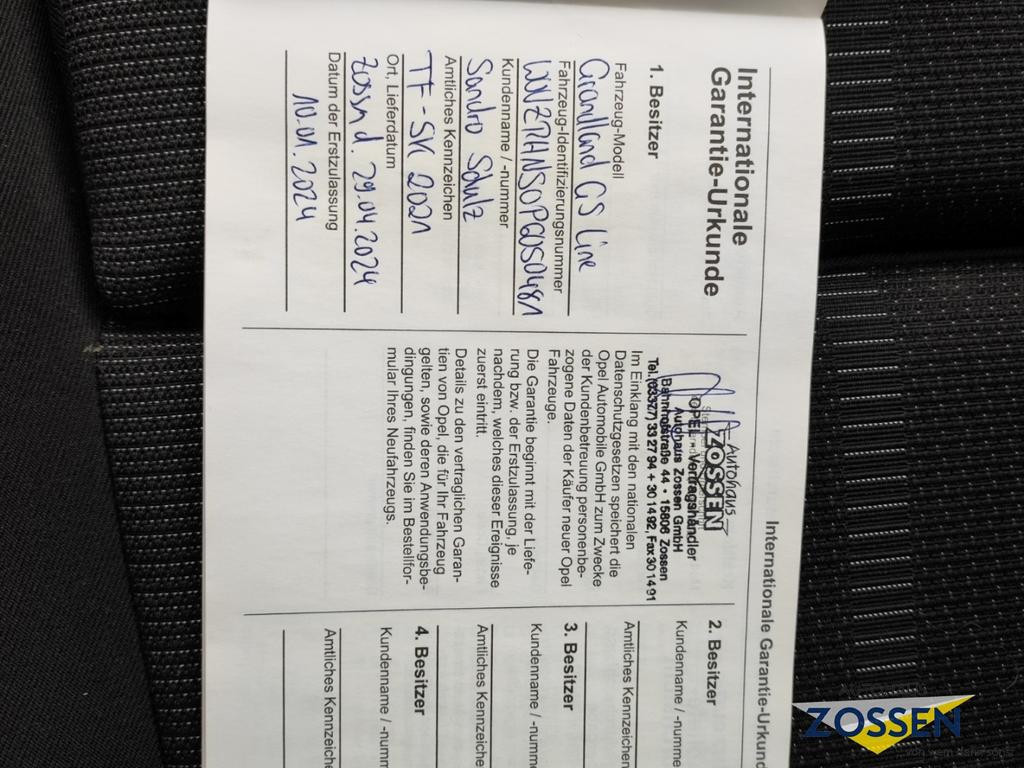 Internationale Garantie-Urkund
Internationale
Garantie-Urkunde
1. Besitzer
Fahrzeug-Modell
Grandland GS Line
Fahrzeug-Identifizierungsnummer
Kundenname / -nummer
Sandro Schulz
Amtliches Kennzeichen
TF-SK 2021
Ort, Lieferdatum
Zossen d. 29.04.2024
Datum der Erstzulassung
10.01.2024
Autohaus
ZOSSEN
OPEL - Vertragshändler
Autohaus Zossen GmbH
Bahnhofstraße 44 · 15806 Zossen
Tel. (03377) 33 27 94 + 30 14 92, Fax 30 14 91
Im Einklang mit den nationalen
Datenschutzgesetzen speichert die
Opel Automobile GmbH zum Zwecke
der Kundenbetreuung personenbe-
zogene Daten der Käufer neuer Opel
Fahrzeuge.
Die Garantie beginnt mit der Liefe-
rung bzw. der Erstzulassung, je
nachdem, welches dieser Ereignisse
zuerst eintritt.
Details zu den vertraglichen Garan-
tien von Opel, die für Ihr Fahrzeug
gelten, sowie deren Anwendungsbe-
dingungen, finden Sie im Bestellfor-
mular Ihres Neufahrzeugs.
2. Besitzer
Kundenname / -numme
Amtliches Kennzeichen
3. Besitzer
Kundenname / -numm
Amtliches Kennzeiche
4. Besitzer
Kundenname / -numm
Amtliches Kennzeiche
ZOSSEN